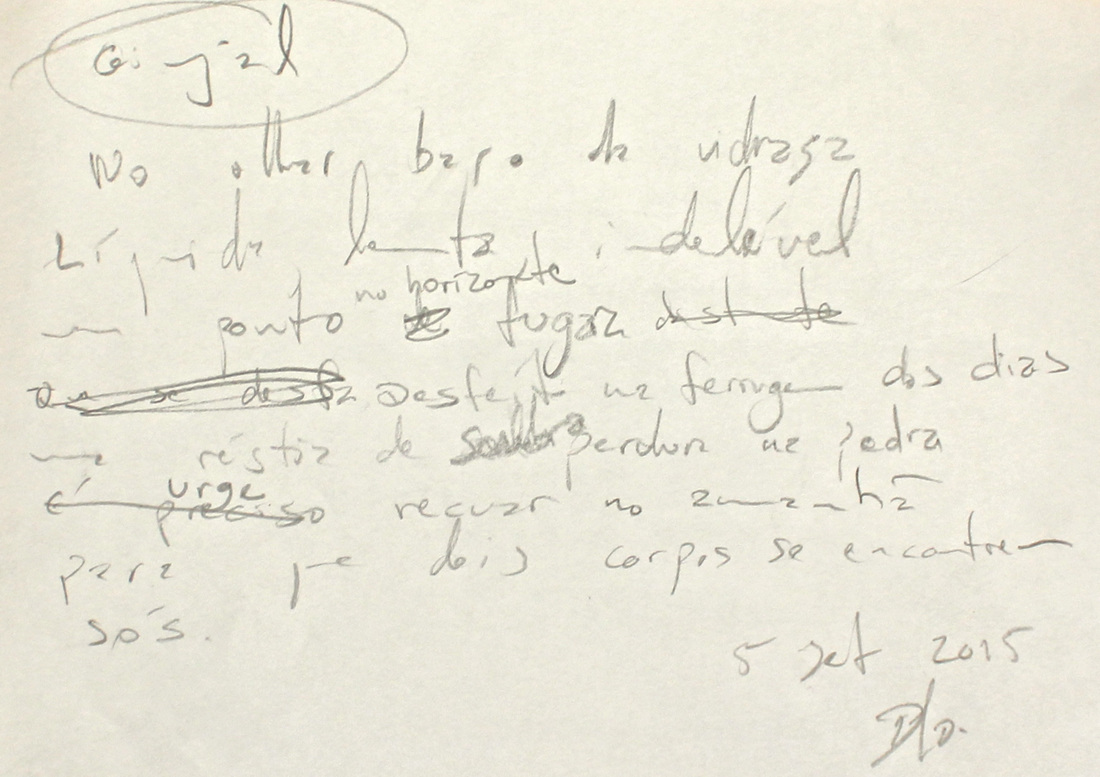 Ginjal
No olhar baço da vidraça
Líquida, lenta, indelével
um ponto no horizonte fugaz distante
que se desfaz Desfeito na ferrugem dos dias
uma réstia de sombra perdura na pedra
é preciso urge recuar no amanhã
para que dois corpos se encontrem
sós.
5 set 2015